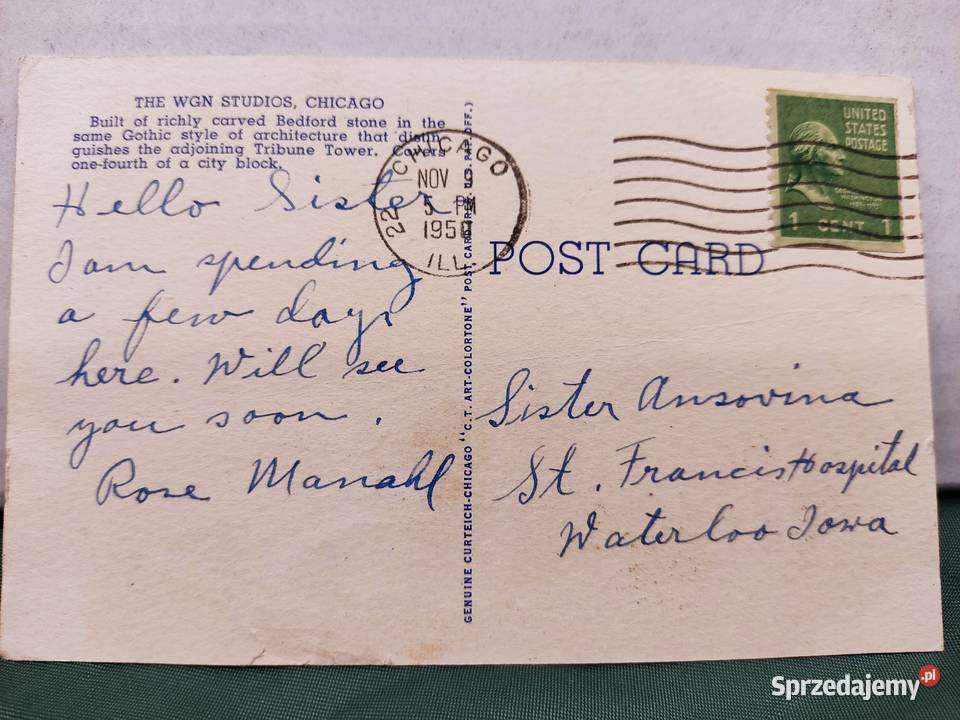 THE WGN STUDIOS, CHICAGO
Built of richly carved Bedford stone in the
same Gothic style of architecture that distin-
guishes the adjoining Tribune Tower. Covers
one-fourth of a city block.
Hello Sister
I am spending
a few days
here. Will see
you soon.
Rose Manahl
GENUINE CURTEICH-CHICAGO "C.T. ART-COLORTONE" POST CARD (REG. U.S. PAT. OFF.)
CHICAGO
22
NOV 9
5 PM
1950
ILL.
POST CARD
UNITED
STATES
POSTAGE
WASHINGTON
1 CENT 1
Sister Ansovina
St. Francis Hospital
Waterloo Iowa
Sprzedajemy.pl